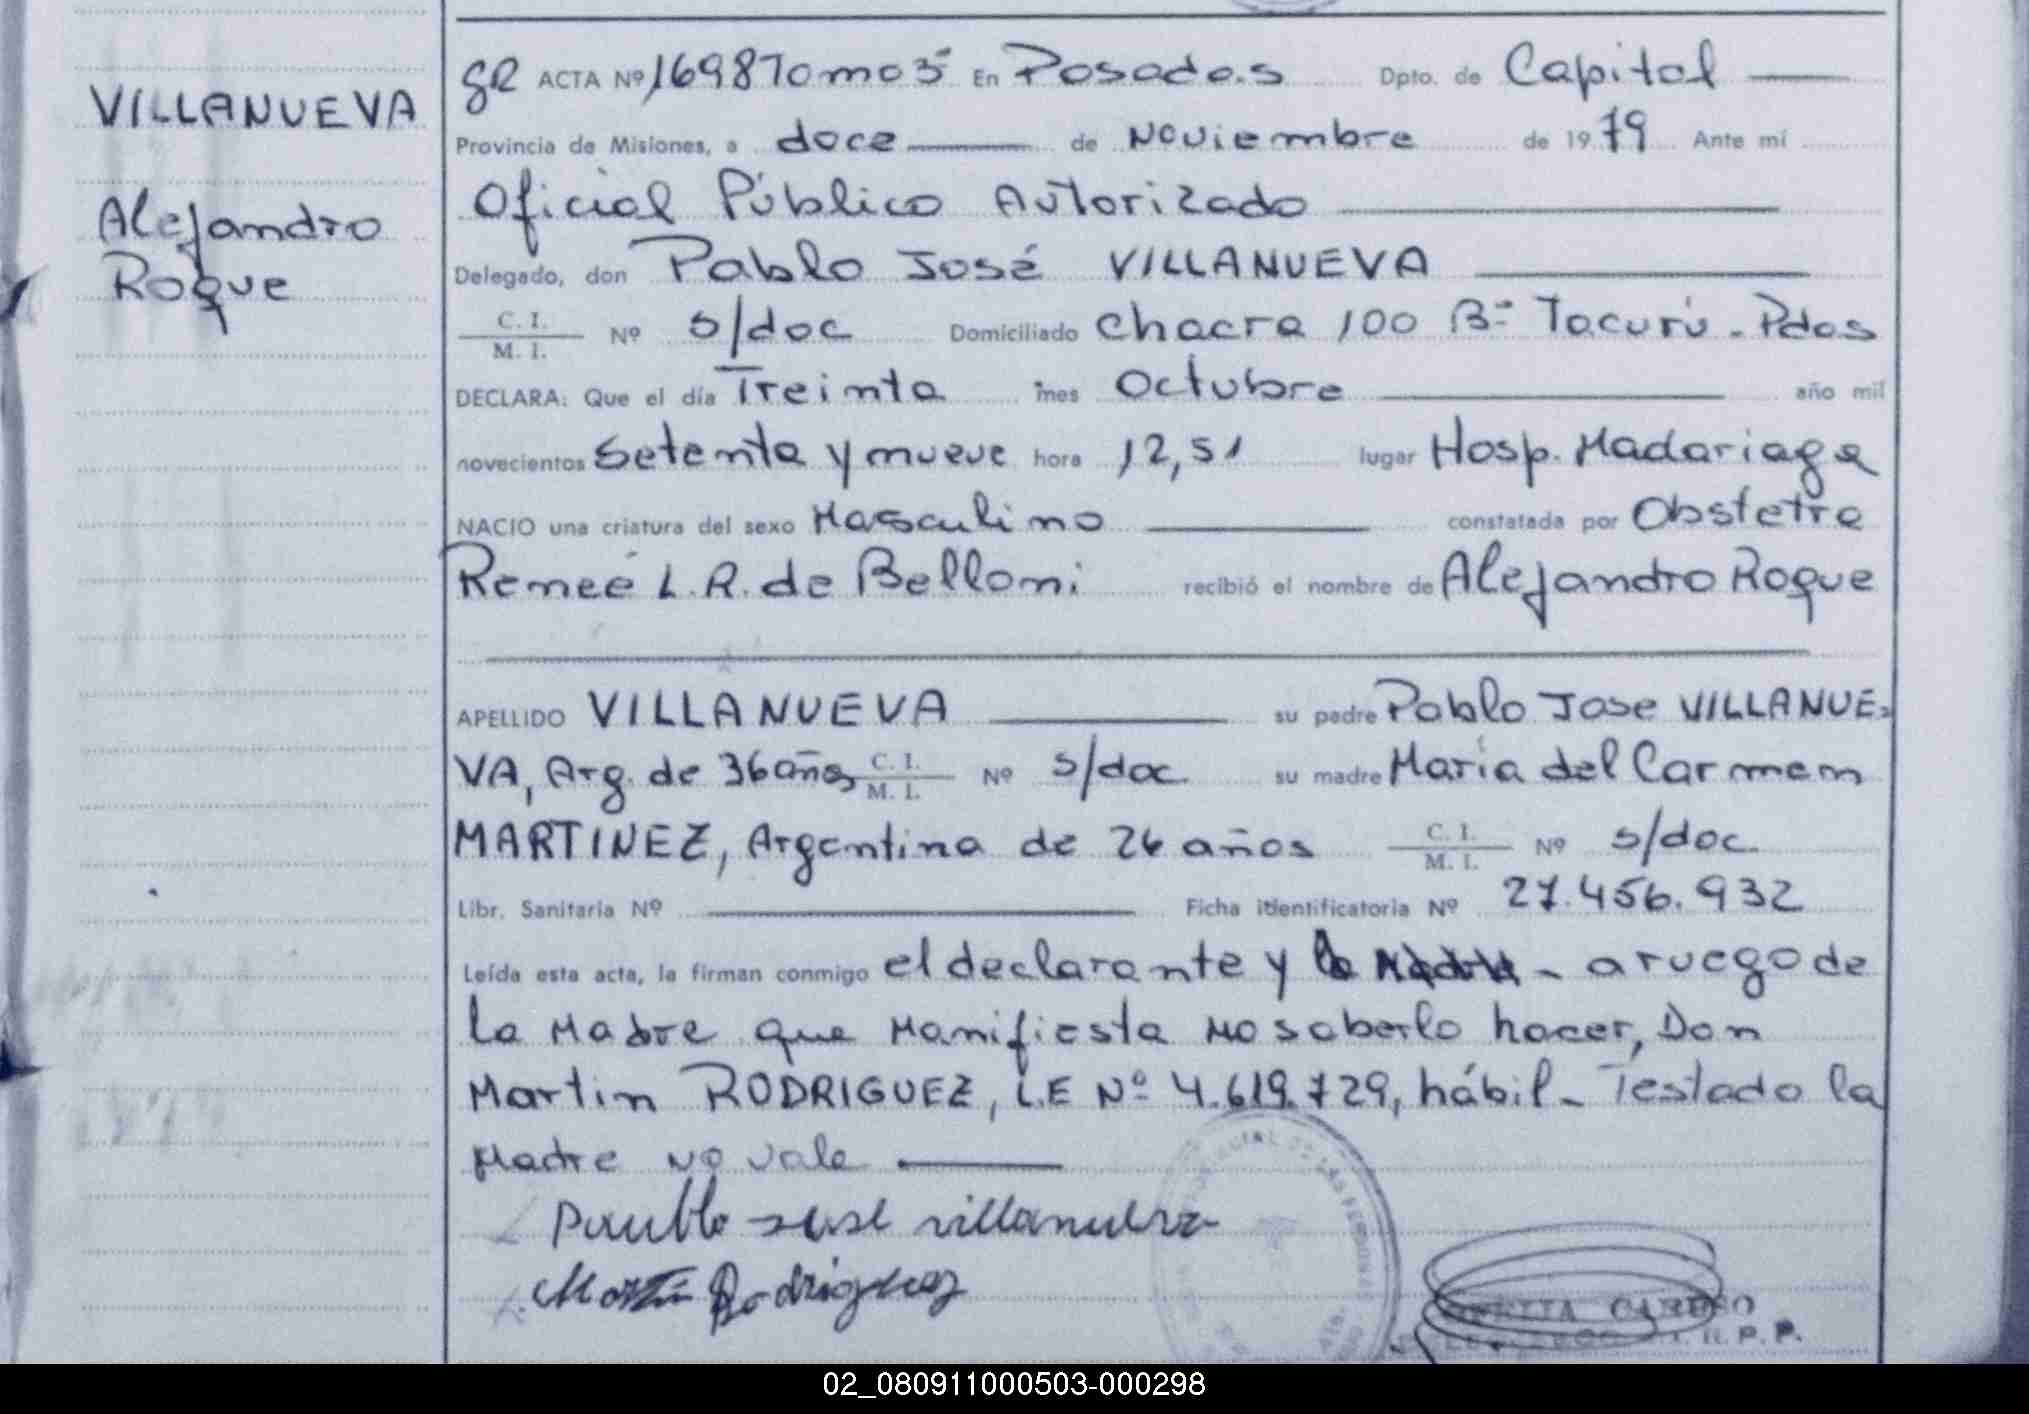 VILLANUEVA
Alejandro
Roque
gR ACTA Nº 1698 Tomo 5 En Posadas Dpto. de Capital
Provincia de Misiones, a doce de Noviembre de 1979 Ante mí
Oficial Público Autorizado
Delegado, don Pablo José VILLANUEVA
C. I. / M. I. Nº s/doc Domiciliado Chacra 100 Bº Tacurú - Pdas
DECLARA: Que el día Treinta mes Octubre año mil
novecientos Setenta y nueve hora 12,51 lugar Hosp. Madariaga
NACIO una criatura del sexo Masculino constatada por Obstetra
Reneé L.R. de Belloni recibió el nombre de Alejandro Roque
APELLIDO VILLANUEVA su padre Pablo Jose VILLANUE-
VA, Arg. de 36 años C. I. / M. I. Nº s/doc su madre María del Carmen
MARTINEZ, Argentina de 26 años C. I. / M. I. Nº s/doc
Libr. Sanitaria Nº Ficha identificatoria Nº 27.456.932
Leída esta acta, la firman conmigo el declarante y la madre - a ruego de
la Madre que manifiesta no saberlo hacer, Don
Martin RODRIGUEZ, L.E Nº 4.619.729, hábil - Testado la
Madre no vale
villanueva
Martin Rodriguez
CARUSO
02_080911000503-000298